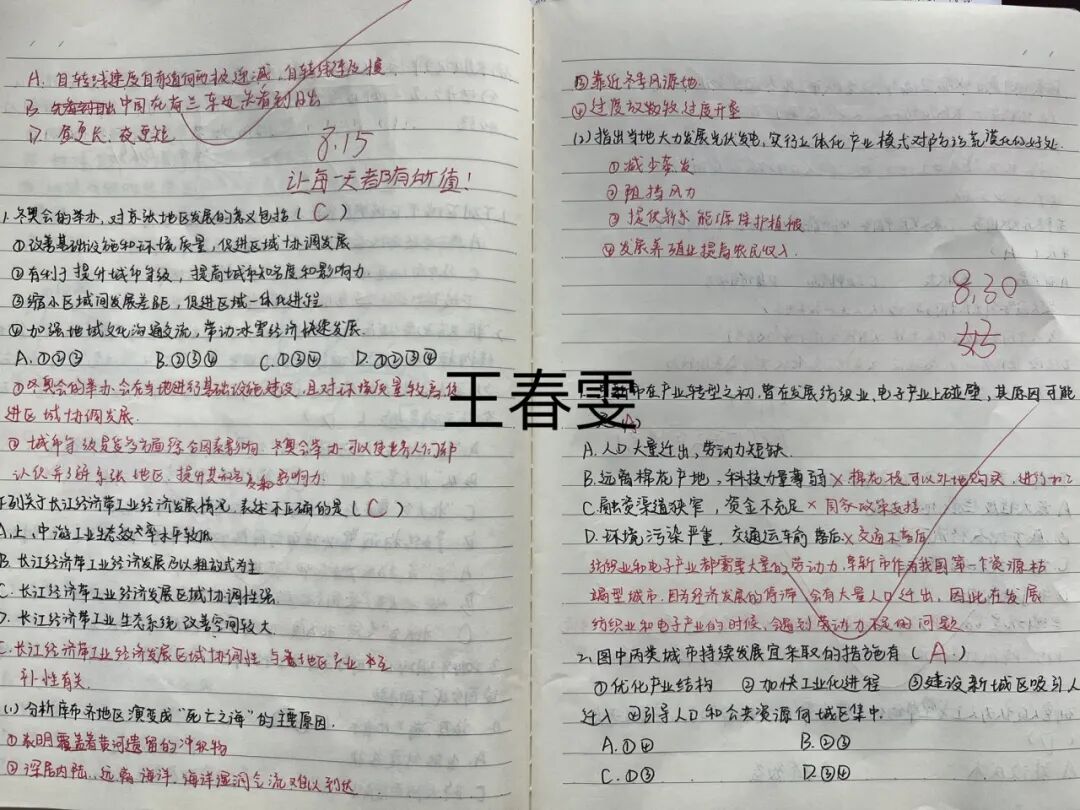 A. 自转线速度自赤道向两极递减，自转线速度慢
B 中国在前三东边先看到日出
D. 昼更长，夜更短
8.15
让每一天都有价值！
1.冬奥会的举办，对京张地区发展的意义包括（C）
①改善基础设施和环境质量，促进区域协调发展
②有利于提升城市等级，提高城市知名度和影响力
③缩小区域间发展差距，促进区域一体化进程
④加强地域文化沟通交流，带动冰雪经济快速发展
A.①②③ B.②③④ C.①③④ D.①②③④
①冬奥会的举办会在当地进行基础设施建设，且对环境质量较高，促
进区域协调发展
②城市等级是受多方面综合因素影响 冬奥会举办可以使世界人们都
认识并了解京张地区，提升其知名度和影响力
下列关于长江经济带工业经济发展情况，表述不正确的是（C）
A.上、中游工业生态效率水平较低
B.长江经济带工业经济发展仍以粗放式为主
C.长江经济带工业经济发展区域协调性强
D.长江经济带工业生态系统改善空间较大
C.长江经济带工业经济发展区域协调性与各地区产业
补性有关
(1)分析库布齐地区演变成“死亡之海”的主要原因.
①表明覆盖着黄河遗留的冲积物
②深居内陆，远离海洋，海洋湿润气流难以到达
③靠近冬季风源地
④过度放牧较过度开垦
(2)指出当地大力发展光伏发电，实行立体化产业模式对防治荒漠化的好处
①减少蒸发
②阻挡风力
③提供新能源保护植被
④发展养殖业提高农民收入
8.30
王春雯
1.阜新市在产业转型之初，曾在发展纺织业、电子产业上碰壁，其原因可能
（A）
A.人口大量迁出，劳动力短缺
B.远离棉花产地，科技力量薄弱×棉花枝可以外地购买，进行加工
C.融资渠道狭窄，资金不充足×国家政策支持
D.环境污染严重，交通运车前落后×交通不落后
纺织业和电子产业都需要大量的劳动力，阜新市作为我国第一个资源枯
竭型城市，因为经济发展的停滞会有大量人口迁出，因此在发展
纺织业和电子产业的时候，会遇到劳动力不够用问题
2.图中丙类城市持续发展宜采取的措施有（A）
①优化产业结构 ②加快工业化进程 ③建设新城区吸引人
迁入 ④引导人口和公共资源向城区集中
A.①④ B.②③
C.①③ D.②④